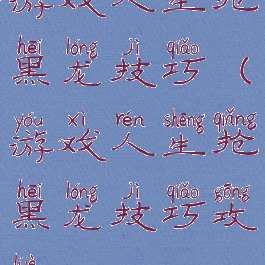 游戏人生抢
hēi lóng jì qiǎo
黑龙技巧（
yóu xì rén shēng qiǎng
游戏人生抢
hēi lóng jì qiǎo gōng
黑龙技巧攻
lüè